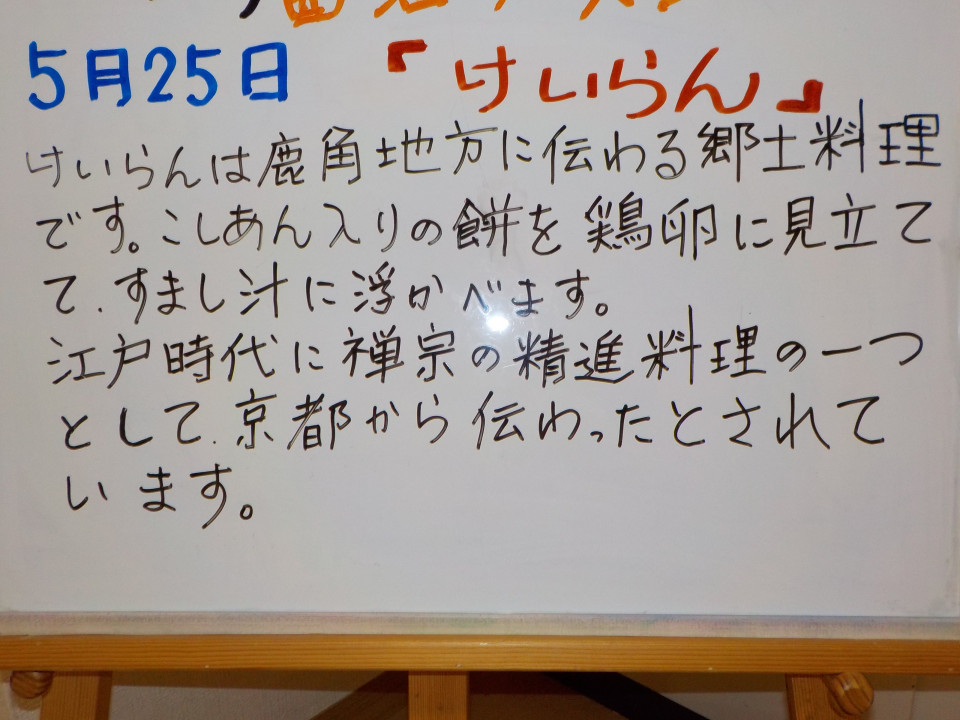 5月25日 『けいらん』
けいらんは鹿角地方に伝わる郷土料理
です。こしあん入りの餅を鶏卵に見立て
て、すまし汁に浮かべます。
江戸時代に禅宗の精進料理の一つ
として、京都から伝わったとされて
います。